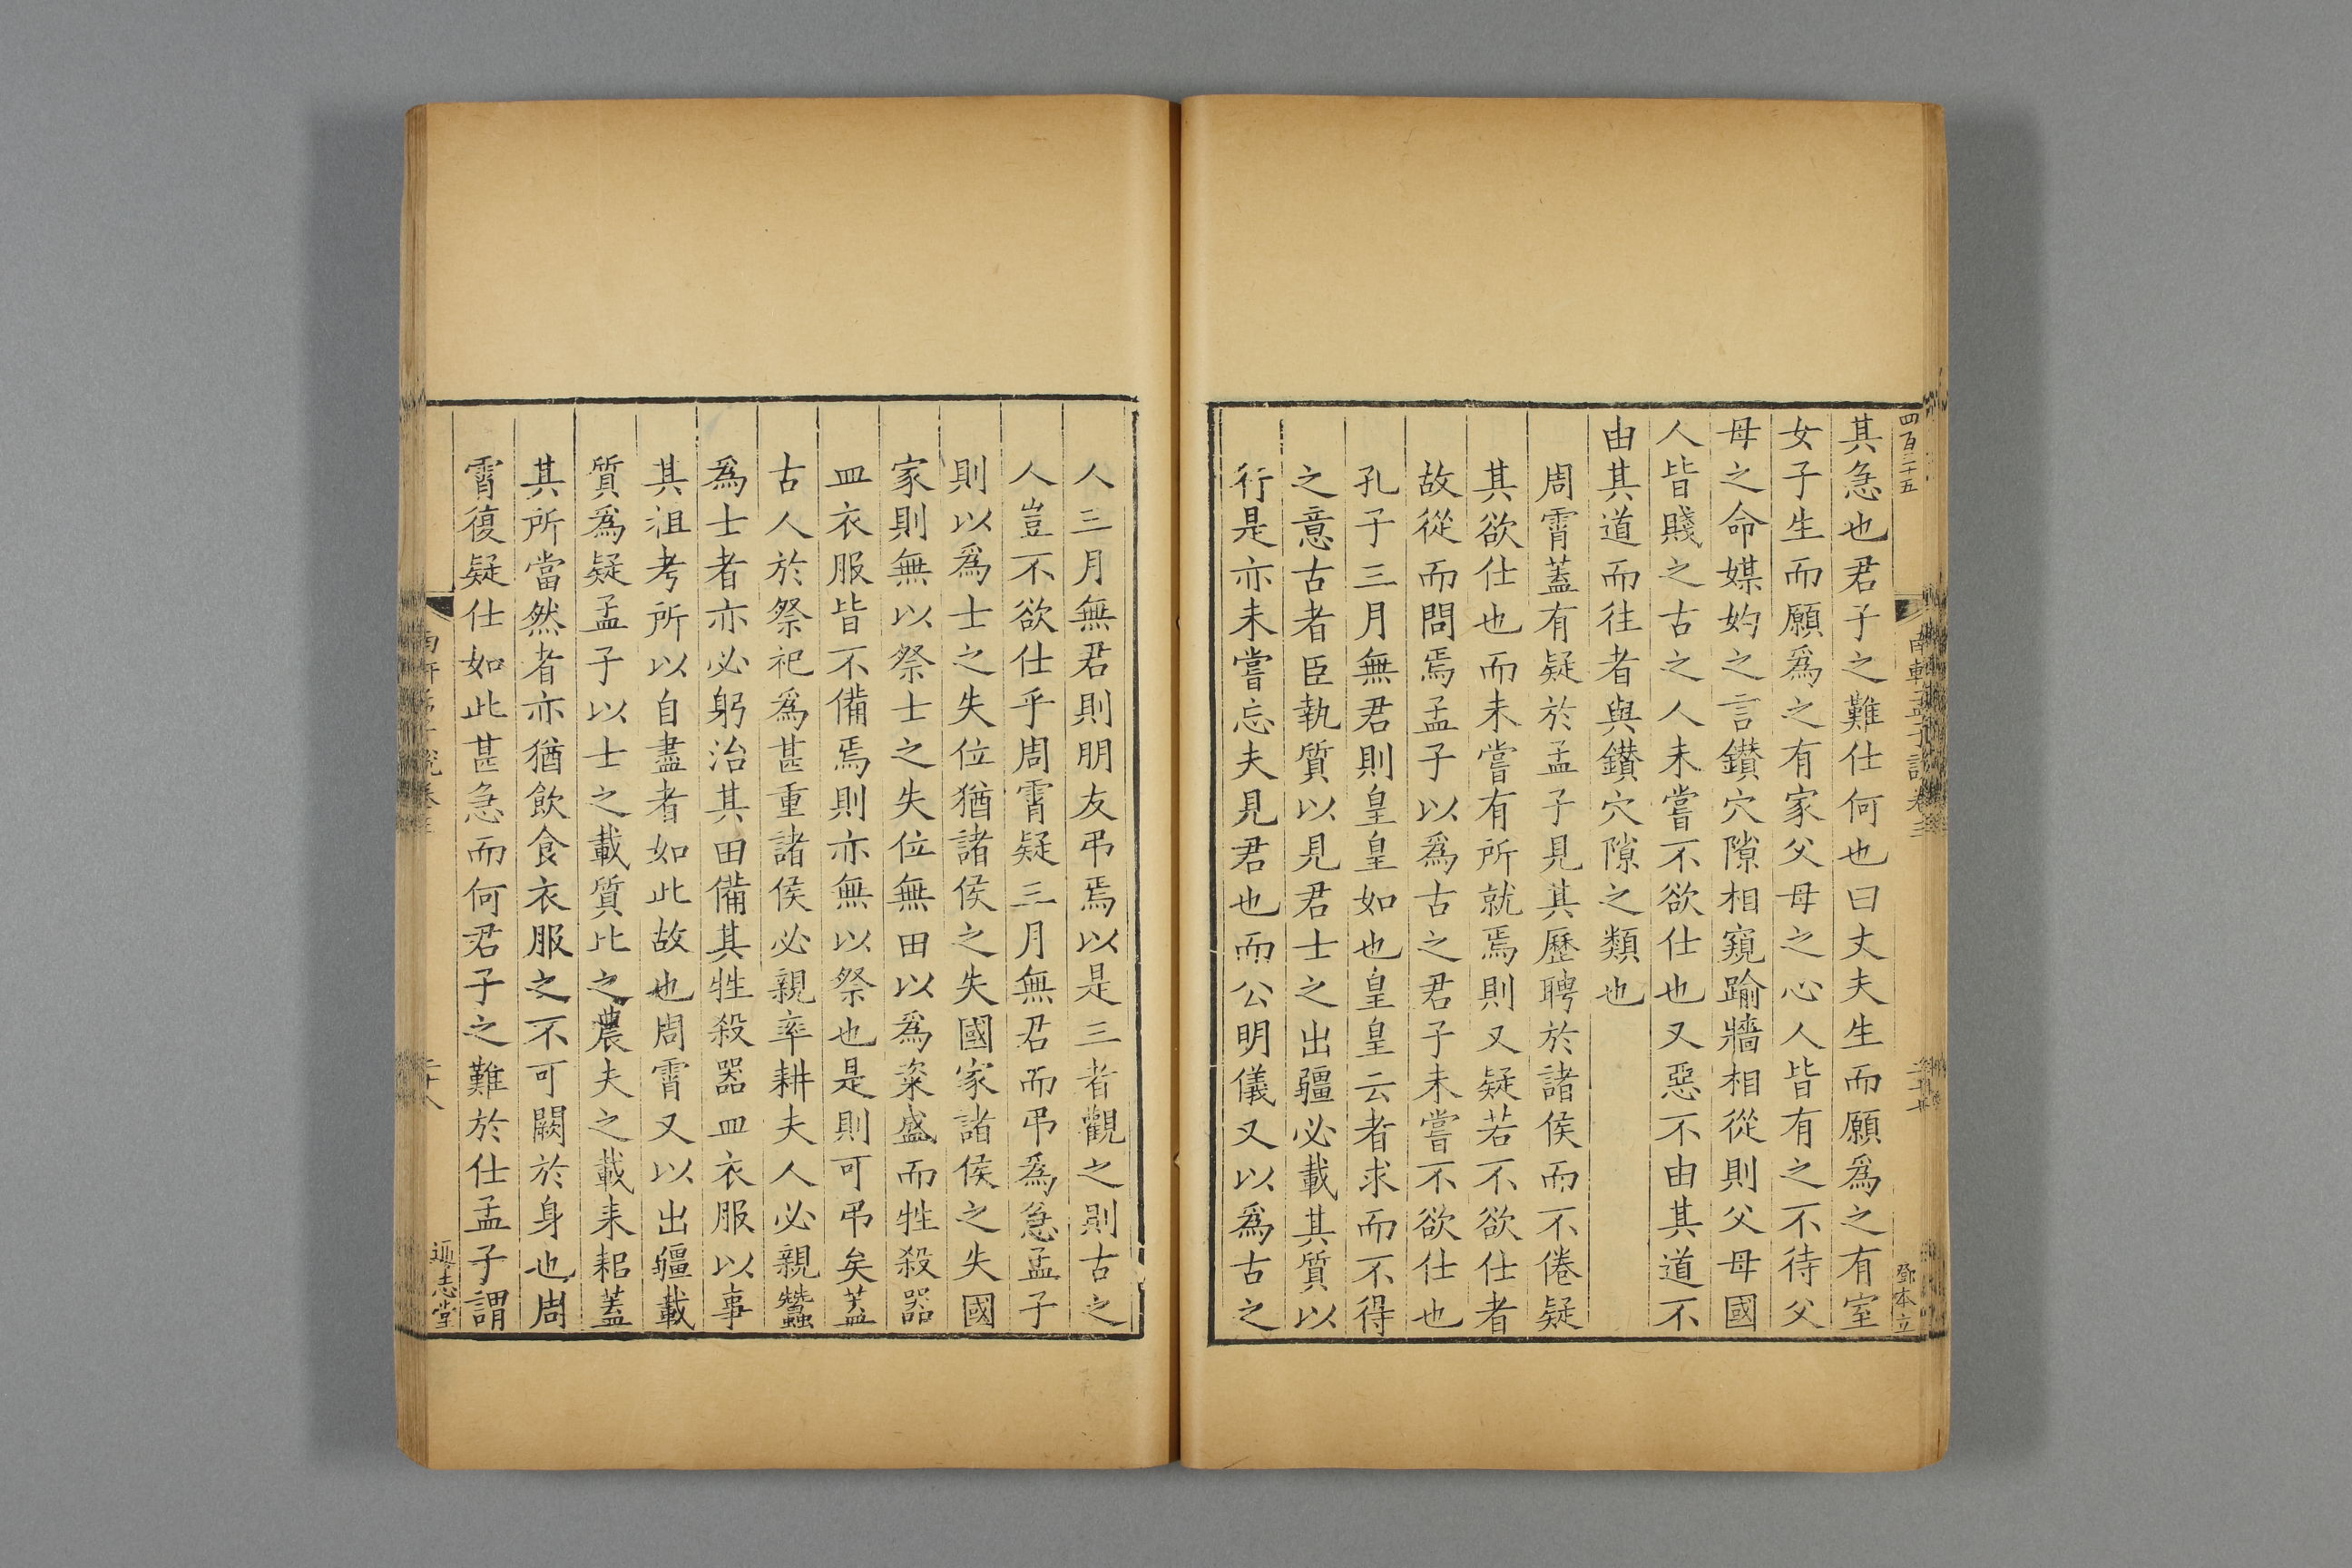 四百三十五
鄧本立
其急也君子之難仕何也曰丈夫生而願爲之有室
女子生而願爲之有家父母之心人皆有之不待父
母之命媒妁之言鑚穴隙相窺踰牆相從則父母國
人皆賤之古之人未嘗不欲仕也又惡不由其道不
由其道而往者與鑚穴隙之類也
周霄蓋有疑於孟子見其歷聘於諸侯而不倦疑
其欲仕也而未嘗有所就焉則又疑若不欲仕者
故從而問焉孟子以爲古之君子未嘗不欲仕也
孔子三月無君則皇皇如也皇皇云者求而不得
之意古者臣執質以見君士之出疆必載其質以
行是亦未嘗忘夫見君也而公明儀又以爲古之
人三月無君則朋友弔焉以是三者觀之則古之
人豈不欲仕乎周霄疑三月無君而弔爲急孟子
則以爲士之失位猶諸侯之失國家諸侯之失國
家則無以祭士之失位無田以爲粢盛而牲殺器
皿衣服皆不備焉則亦無以祭也是則可弔矣蓋
古人於祭祀爲甚重諸侯必親率耕夫人必親蠶
爲士者亦必躬治其田備其牲殺器皿衣服以事
其沮考所以自盡者如此故也周霄又以出疆載
質爲疑孟子以士之載質比之農夫之載耒耜蓋
其所當然者亦猶飲食衣服之不可闕於身也周
霄復疑仕如此甚急而何君子之難於仕孟子謂
通志堂